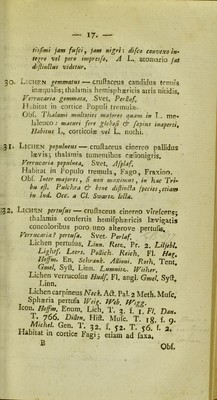 — 17 —
tissimi jam fusci, jam nigri; disco convexo in-
tegro vel poro impresso, A L. atomario sat
distinctus videtur.
30. LICHEN gemmatus — crustaceus candidus tenuis
inæqualis; thalamis hemisphæricis atris nitidis,
Verrucaria gemmata, Svet.
Habitat in cortice Populi tremulæ.
Obs. Thalami multoties majores quam in L. me-
laleuco: mature fere globosi & sæpius inaperti,
Habitus L, corticolæ vel L. nuchi.
31. LICHEN populneus — crustaceus cinereo pallidus
lævis; thalamis tumentibus cæsionigris,
Verrucaria populnea, Svet.
Habitat in Populo tremula, Fago, Fraxino.
Obs. Inter majores, si non maximus, in hac Tri-
bu est. Pulchra & bene distincta species, etiam
in Ind. Occ. a Cl. Swartz. lecta.
32. LICHEN pertusus — crustaceus cinereo virescens;
thalamis confertis hemisphæricis lævigatis
concoloribus poro uno alterove pertusis,
Verrucaria? pertusa. Svet.
Lichen pertusus, Linn. Retz, Pr. 2. Liljebl,
Lightf. Leers. Pollich. Reich, Fl Hag,
Hoffm. En, Schrank. Allioni. Roth, Tent,
Gmel, Syst, Linn. Lumnitz. Wither.
Lichen verrucosus Huds. Fl. angl. Gmel, Syst,
Linn.
Lichen carpineus Neck. Act. Pal. 2 Meth. Musc,
Sphæria pertusa Weig. Web, Wigg.
Icon. Hoffm, Enum, Lich, T. 3. f. 1. Fl. Dan.
T. 766. Dillen, Hist. Musc. T. 18. f. 9.
Michel. Gen. T. 32. f. 52. T. 56. f. 2.
Habitat in cortice Fagi; etiam ad saxa,
B
Obs.